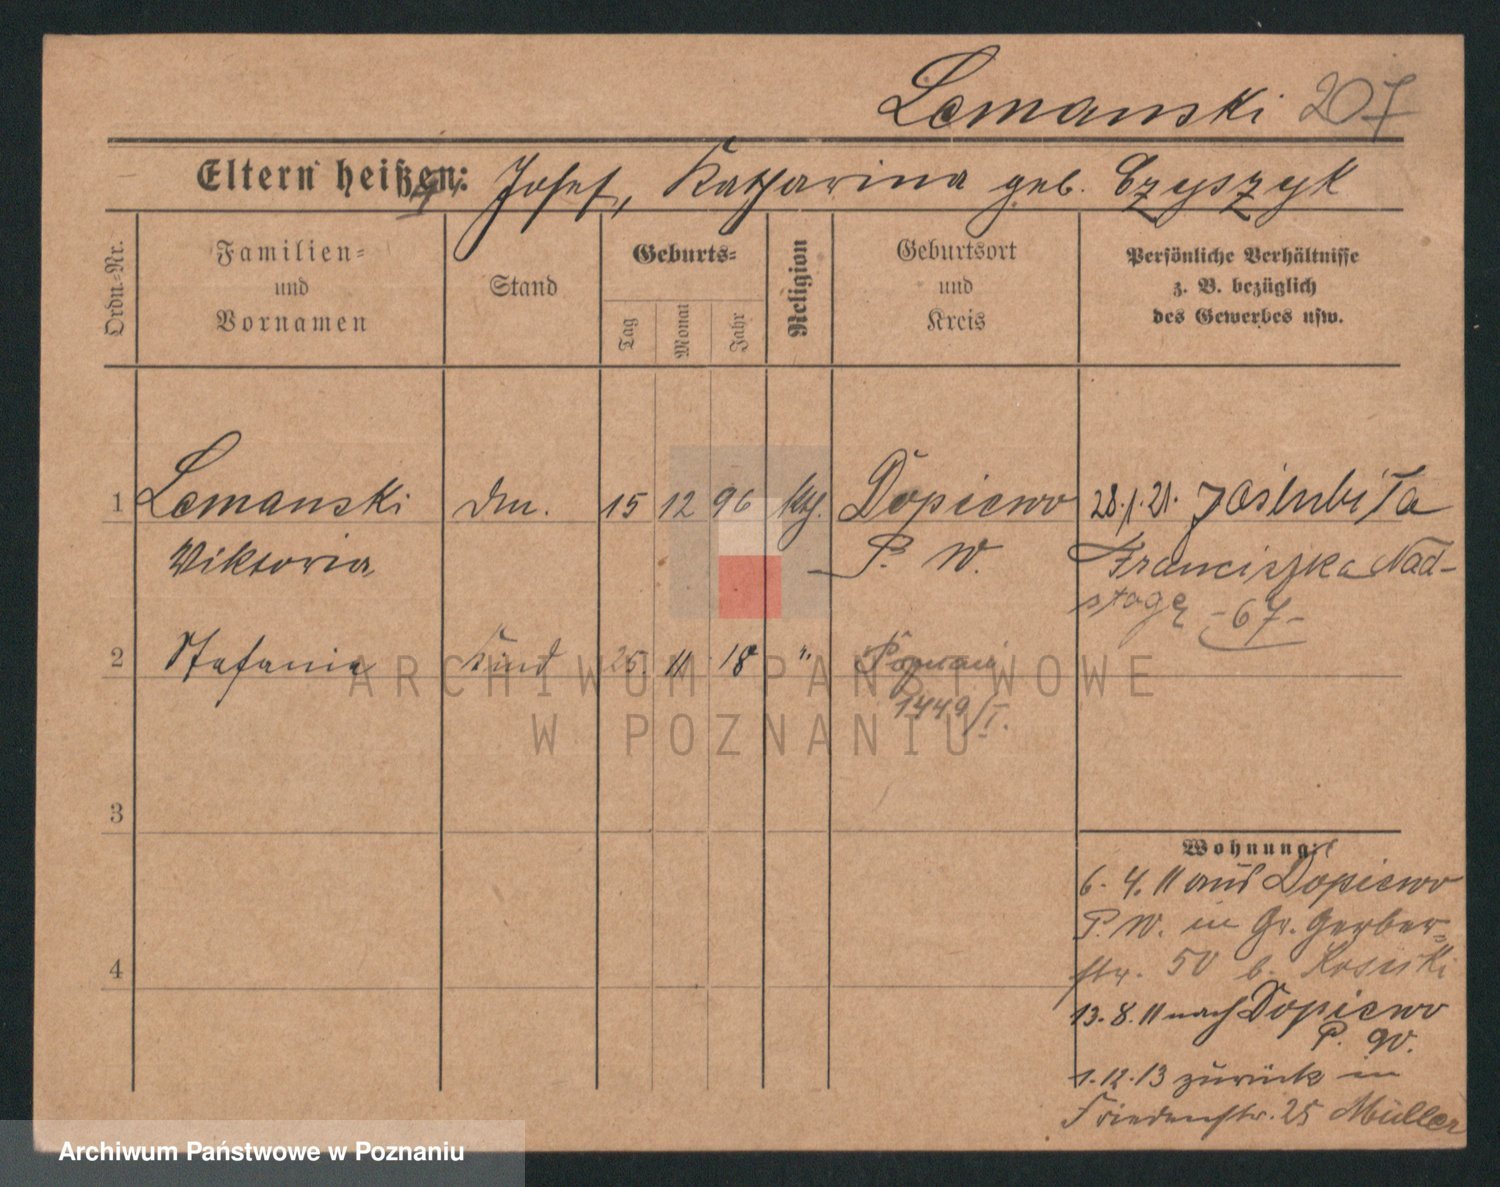 Lemanski 207
Eltern heißen: Josef, Katharina geb. Czyszyk
Ordn.-Nr.
Familien- und Vornamen
Stand
Geburts-
Tag
Monat
Jahr
Religion
Geburtsort und Kreis
Persönliche Verhältnisse
z. B. bezüglich
des Gewerbes usw.
1 Lemanski dm. 15 12 96 kth. Dopiewo 28.1.21.
Viktoria P. W. Franciszka Nad-
stogę -67-
2 Stefanie Kind 25. 11 18 " Poznań
1449/I.
3
4
Wohnung:
6. 4. 11 aus Dopiewo
P. W. in Gr. Gerber-
str. 50 b.
13. 8. 11 nach Dopiewo
P. W.
1. 12. 13 zurück in
Friedenstr. 25 Müller
ARCHIWUM PAŃSTWOWE
W POZNANIU
Archiwum Państwowe w Poznaniu